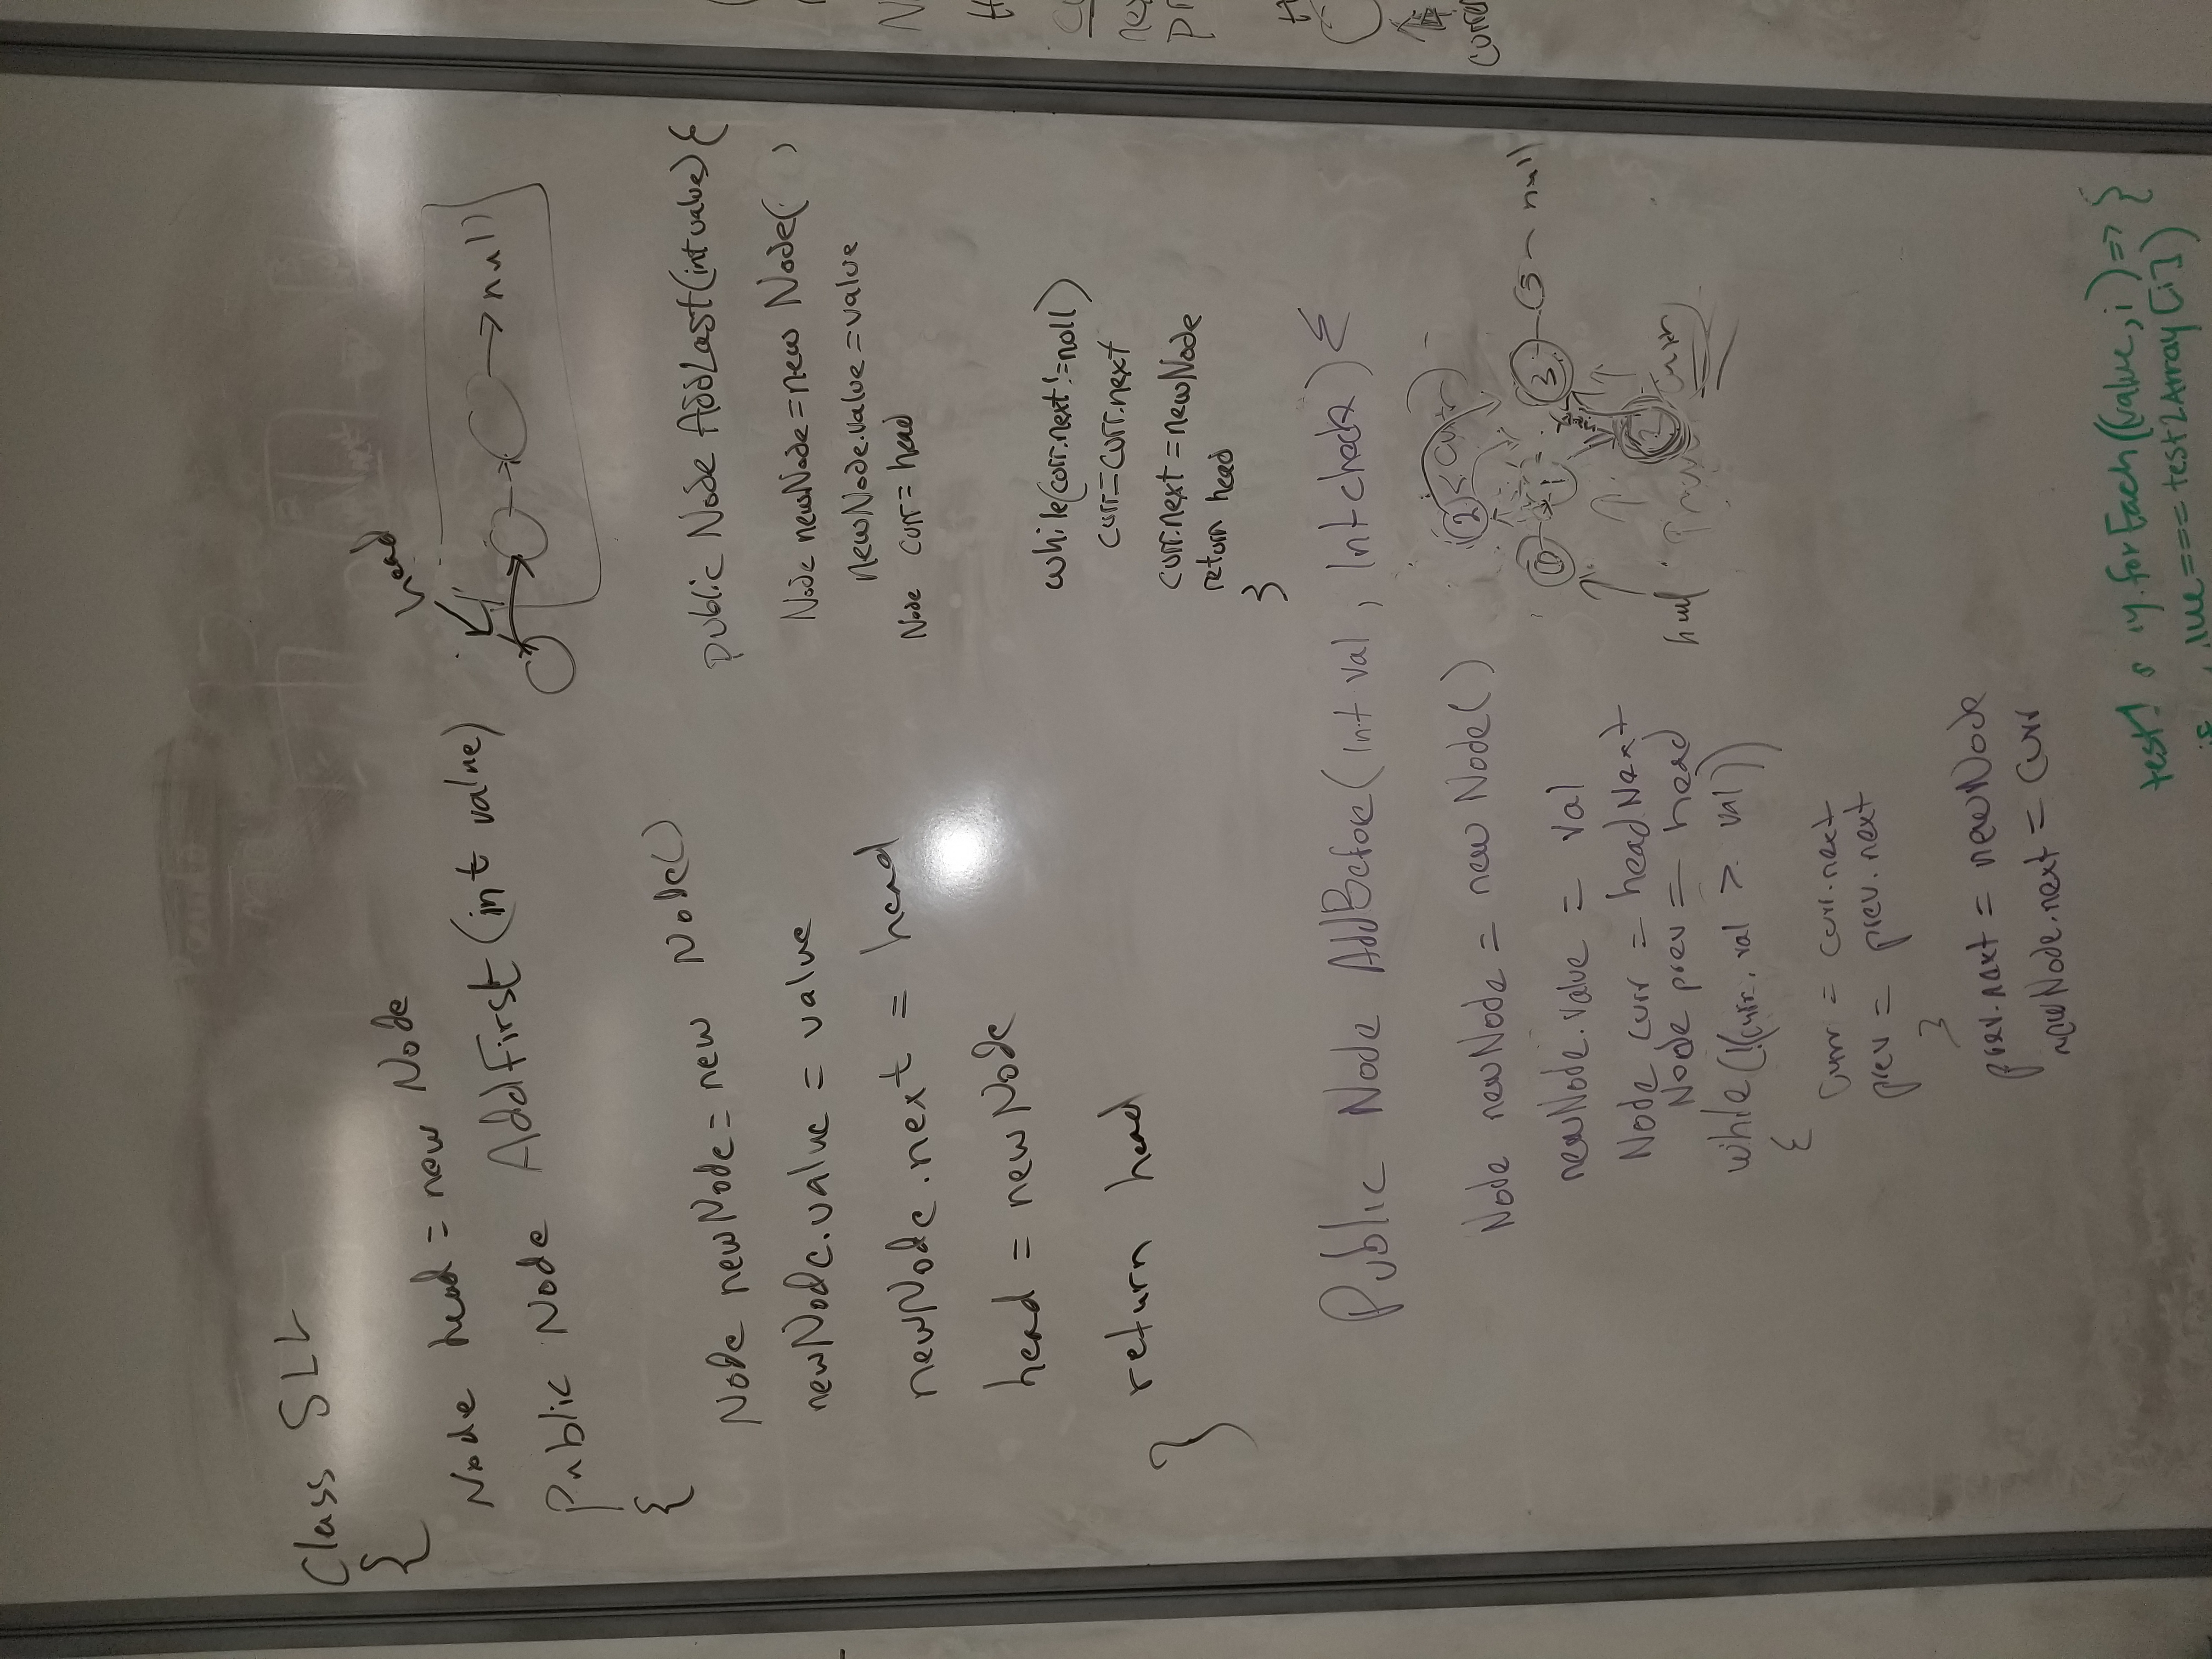 Class SLL
{
Node head = new Node
Public Node AddFirst (int value)
{
Node newNode = new Node()
newNode.value = value
newNode.next = head
head = newNode
return head
}
head
null
public Node AddLast(int value) {
Node newNode = new Node( )
newNode.value = value
Node curr = head
while(curr.next != null)
curr = curr.next
curr.next = newNode
return head
}
Public Node AddBefore(int val, Int check) {
Node newNode = new Node()
newNode.value = val
Node curr = head.Next
Node prev = head
while(!(curr.val > val))
{
curr = curr.next
prev = prev.next
}
prev.next = newNode
newNode.next = curr
2 curr
1 3 5 null
2
head Prev curr
.forEach((value, i) => {
=== test2Array[i])